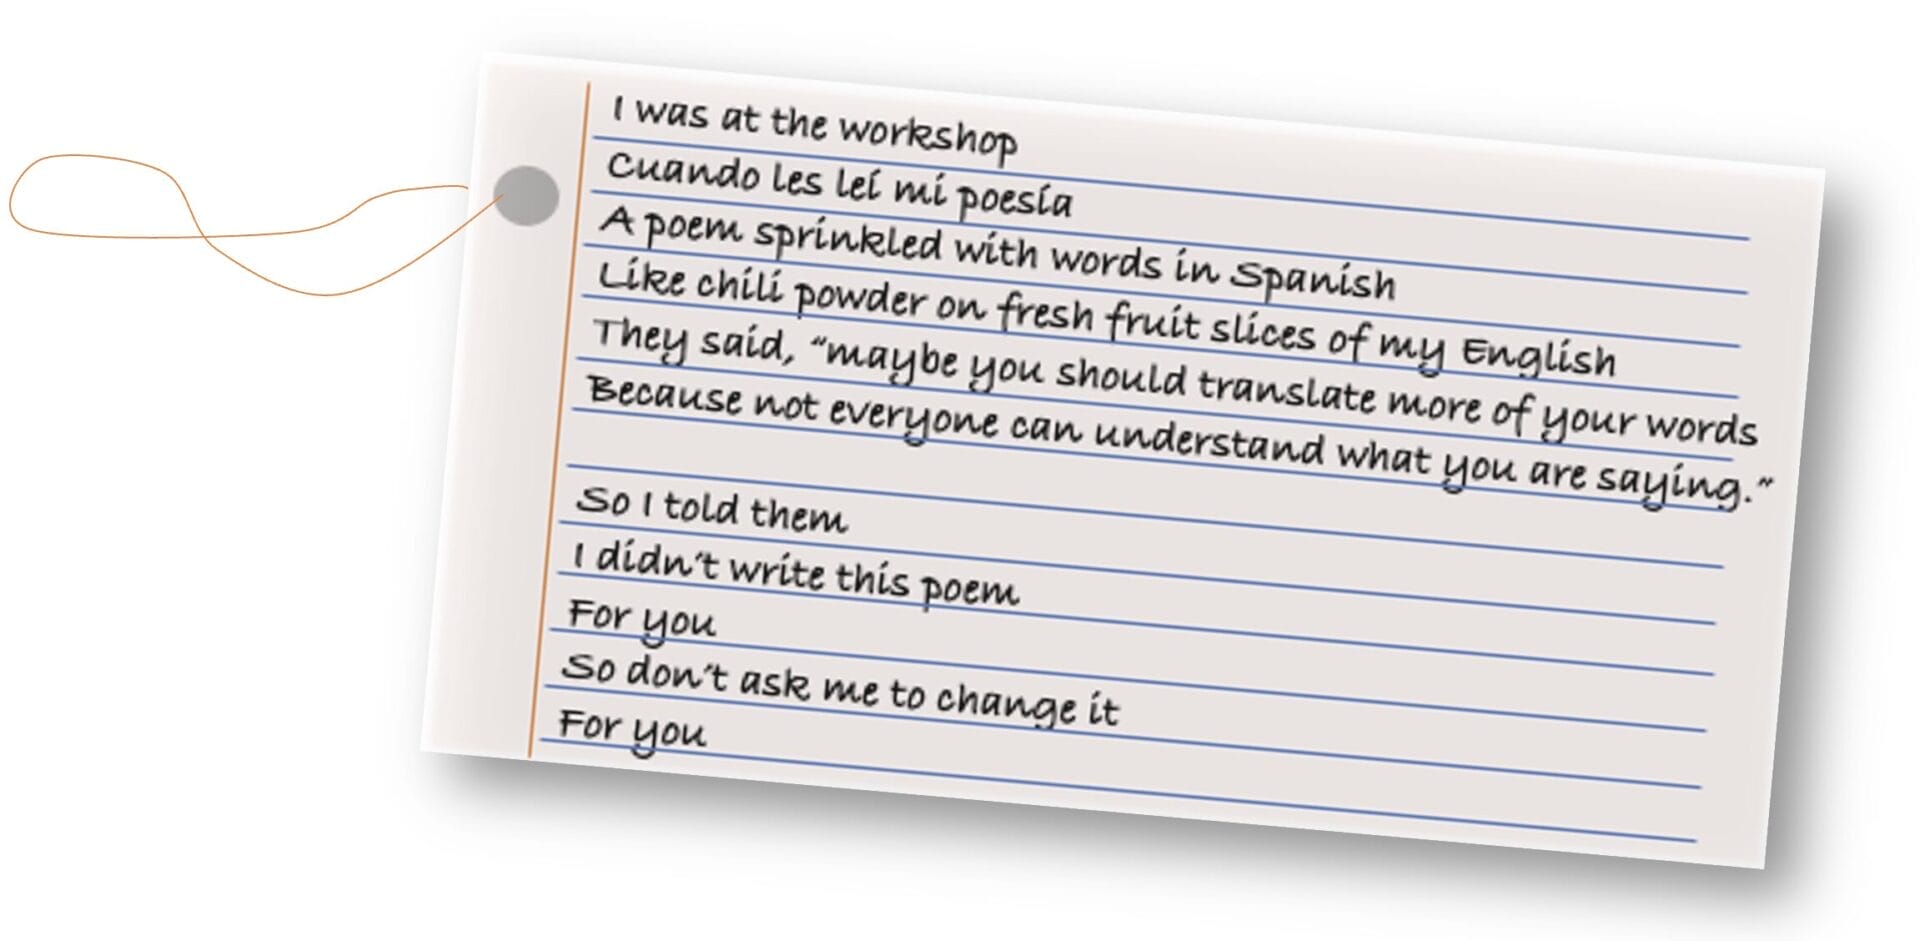 I was at the workshop
Cuando les leí mi poesía
A poem sprinkled with words in Spanish
Like chili powder on fresh fruit slices of my English
They said, “maybe you should translate more of your words
Because not everyone can understand what you are saying.”
So I told them
I didn’t write this poem
For you
So don’t ask me to change it
For you